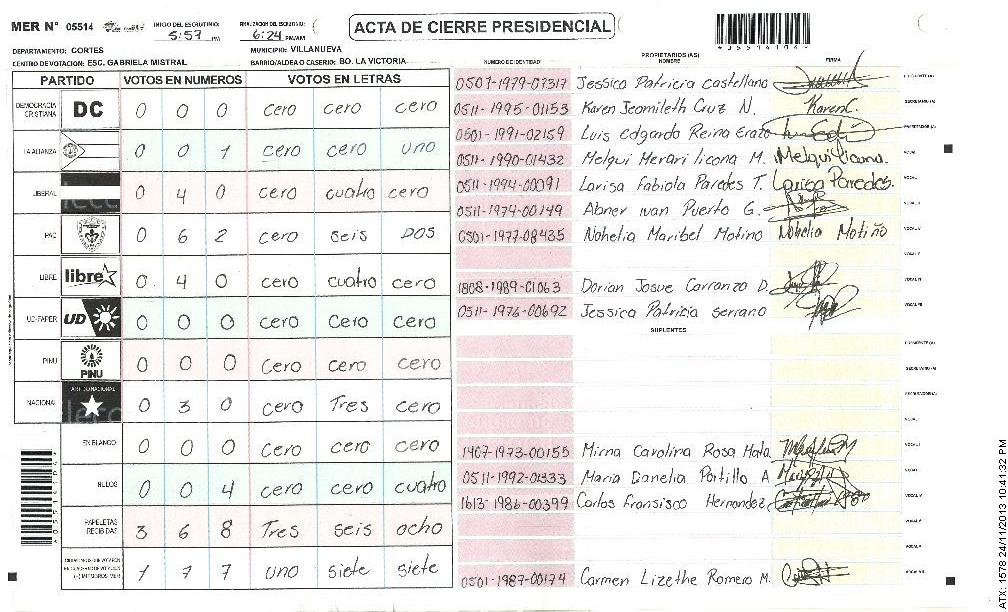 MER N° 05514
INICIO DEL ESCRUTINIO: 5:57 PM
FINALIZACION DEL ESCRUTINIO: 6:24 PM/AM
ACTA DE CIERRE PRESIDENCIAL
DEPARTAMENTO: CORTES
MUNICIPIO: VILLANUEVA
CENTRO DE VOTACION: ESC. GABRIELA MISTRAL
BARRIO/ALDEA O CASERIO: BO. LA VICTORIA
PARTIDO VOTOS EN NUMEROS VOTOS EN LETRAS
DEMOCRACIA CRISTIANA DC 0 0 0 cero cero cero
LA ALIANZA 0 0 1 cero cero uno
LIBERAL 0 4 0 cero cuatro cero
PAC 0 6 2 cero seis DOS
LIBRE libre 0 4 0 cero cuatro cero
UD-FAPER UD 0 0 0 cero cero cero
PINU PINU 0 0 0 cero cero cero
NACIONAL 0 3 0 cero Tres cero
EN BLANCO 0 0 0 cero cero cero
NULOS 0 0 4 cero cero cuatro
PAPELETAS RECIBIDAS 3 6 8 Tres seis ocho
1 7 7 uno siete siete
NUMERO DE IDENTIDAD PROPIETARIOS (AS) NOMBRE FIRMA
0501-1979-07317 Jessica Patricia castellano
0511-1995-01153 Karen Jeomileth Cruz N. Karen C.
0501-1991-02159 Luis edgardo Reina Erazo
0511-1990-01432 Melqui Merari licona M. Melqui licona.
0511-1994-00091 Larisa Fabiola Paredes T. Larisa Paredes.
0511-1974-00149 Abner ivan Puerto G.
0501-1977-08435 Nohelia Maribel Motino Nohelia Motiño
1808-1989-01063 Dorian Josue Carranza D.
0511-1976-00692 Jessica Patricia serrano
SUPLENTES
1407-1973-00155 Mirna Carolina Rosa Mata
0511-1992-01333 Maria Danelia Portillo A
1613-1986-00399 Carlos Fransisco Hernandez
0501-1987-00174 Carmen Lizethe Romero M.
ATX: 1578 24/11/2013 10:41:32 PM